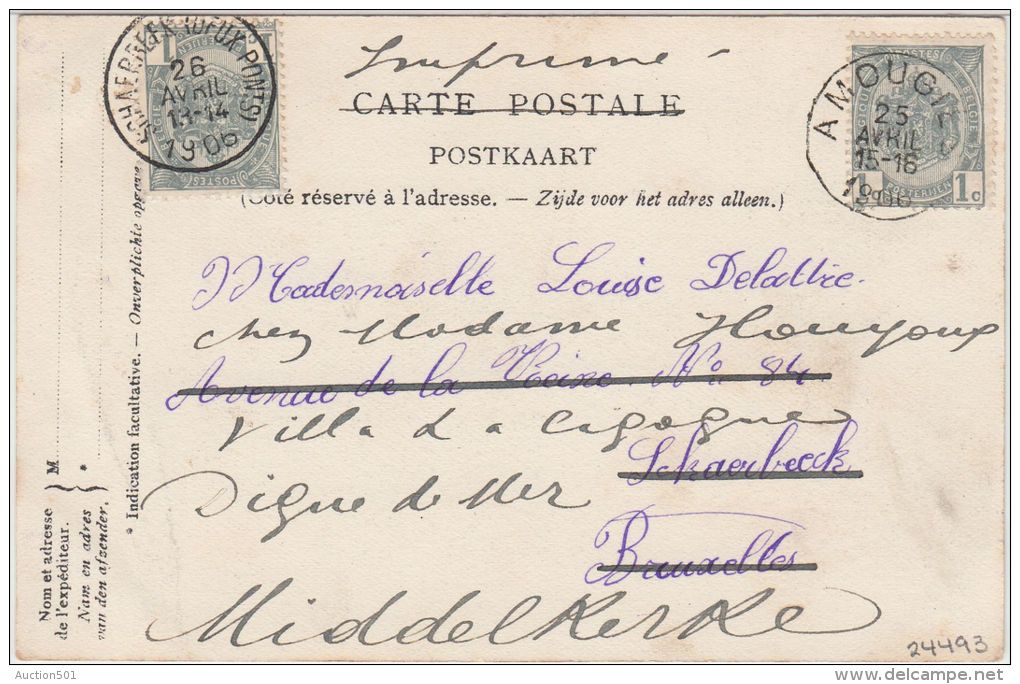 SCHAERBEEK (DEUX PONTS)
26
AVRIL
13-14
1906
POSTES
1
Imprimé
CARTE POSTALE
POSTKAART
(Côté réservé à l'adresse. — Zijde voor het adres alleen.)
AMOUGIES
25
AVRIL
15-16
1906
POSTES
BELGIQUE
BELGIE
POSTERIJEN
1c
Mademoiselle Louise Delattre.
chez Madame Houyoux
Avenue de la Reine. No 84.
Villa La Cigogne
Schaerbeeck
Digue de Mer
Bruxelles
Middelkerke
24493
Nom et adresse
de l'expéditeur.
Nam en adres
van den afzender.
} M
*
* Indication facultative. — Onverplichte opgave
Auction501
delcampe.net